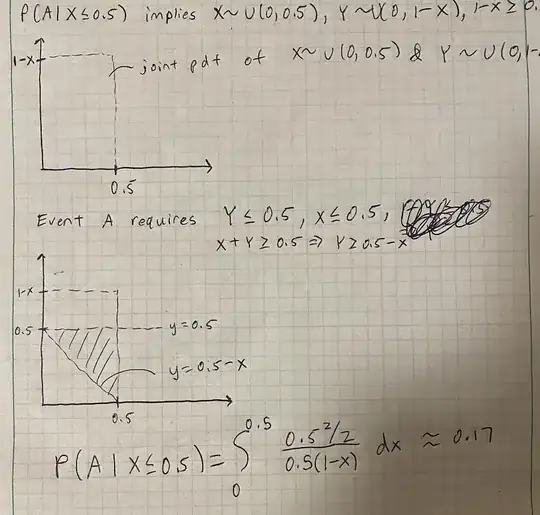 P(A|X≤0.5) implies X~U(0,0.5), Y~U(0,1-X), 1-X≥0.
1-X
joint pdf of X~U(0,0.5) & Y~U(0,1-
0.5
Event A requires Y≤0.5, X≤0.5,
X+Y≥0.5 ⇒ Y≥0.5-X
1-X
0.5
y=0.5
y=0.5-X
0.5
P(A|X≤0.5) = ∫₀^0.5 (0.5²/2)/(0.5(1-X)) dx ≈ 0.17